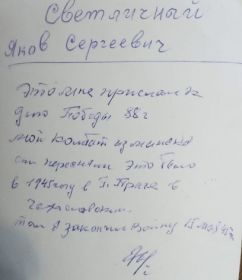 Светличный
Яков Сергеевич
Это мне прислал
день Победы 88 г
мой комбат из
сам Это было
в 1945 году в г. Прага в
Чехословакии.
там я закончил войну 15 мая 45 г